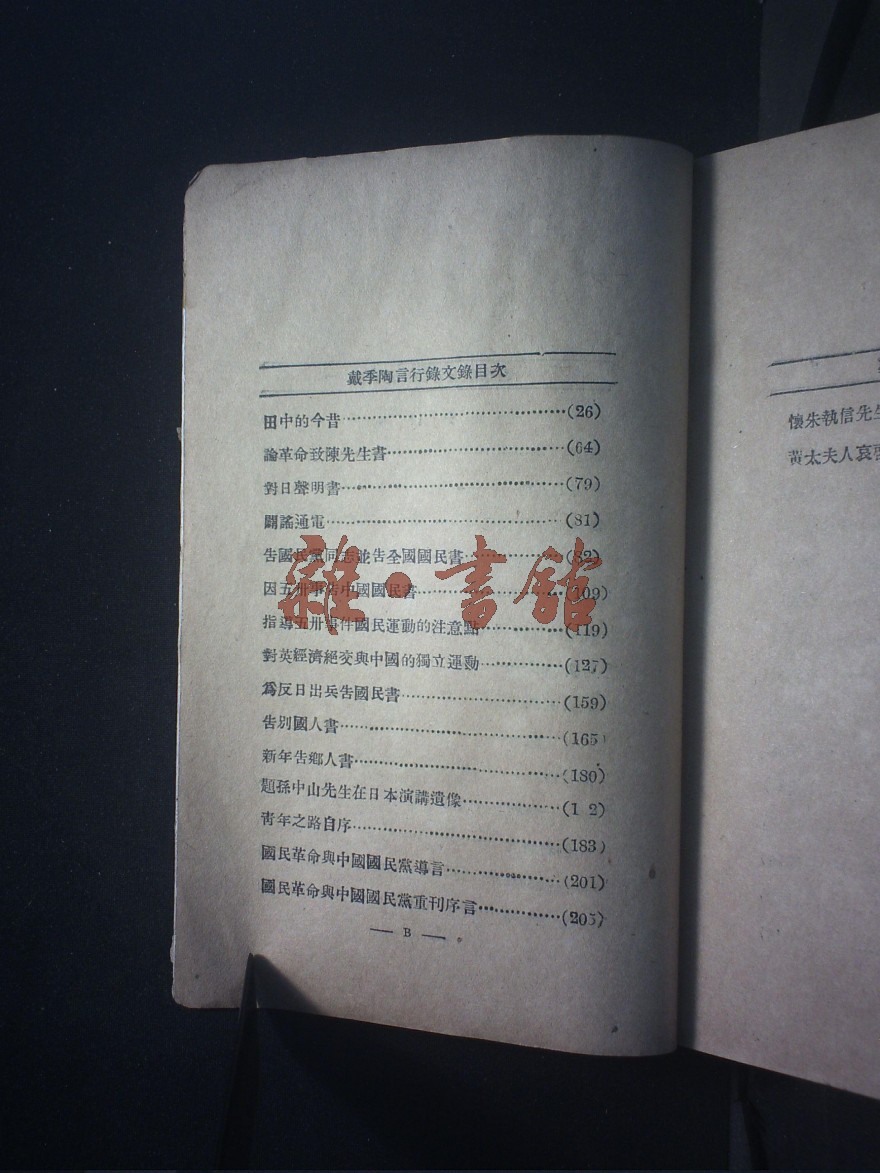 戴季陶言行錄文錄目次
田中的今昔……(26)
論革命致陳先生書……(64)
對日聲明書……(79)
闢謠通電……(81)
告國民黨同志並告全國國民書……(82)
因五卅事告中國國民書……(109)
指導五卅事件國民運動的注意點……(119)
對英經濟絕交與中國的獨立運動……(127)
爲反日出兵告國民書……(159)
告別國人書……(165)
新年告鄉人書……(180)
題孫中山先生在日本演講遺像……(1 2)
靑年之路自序……(183)
國民革命與中國國民黨導言……(201)
國民革命與中國國民黨重刊序言……(205)
— B —
雜·書舘
懷朱執信先生
黃太夫人哀